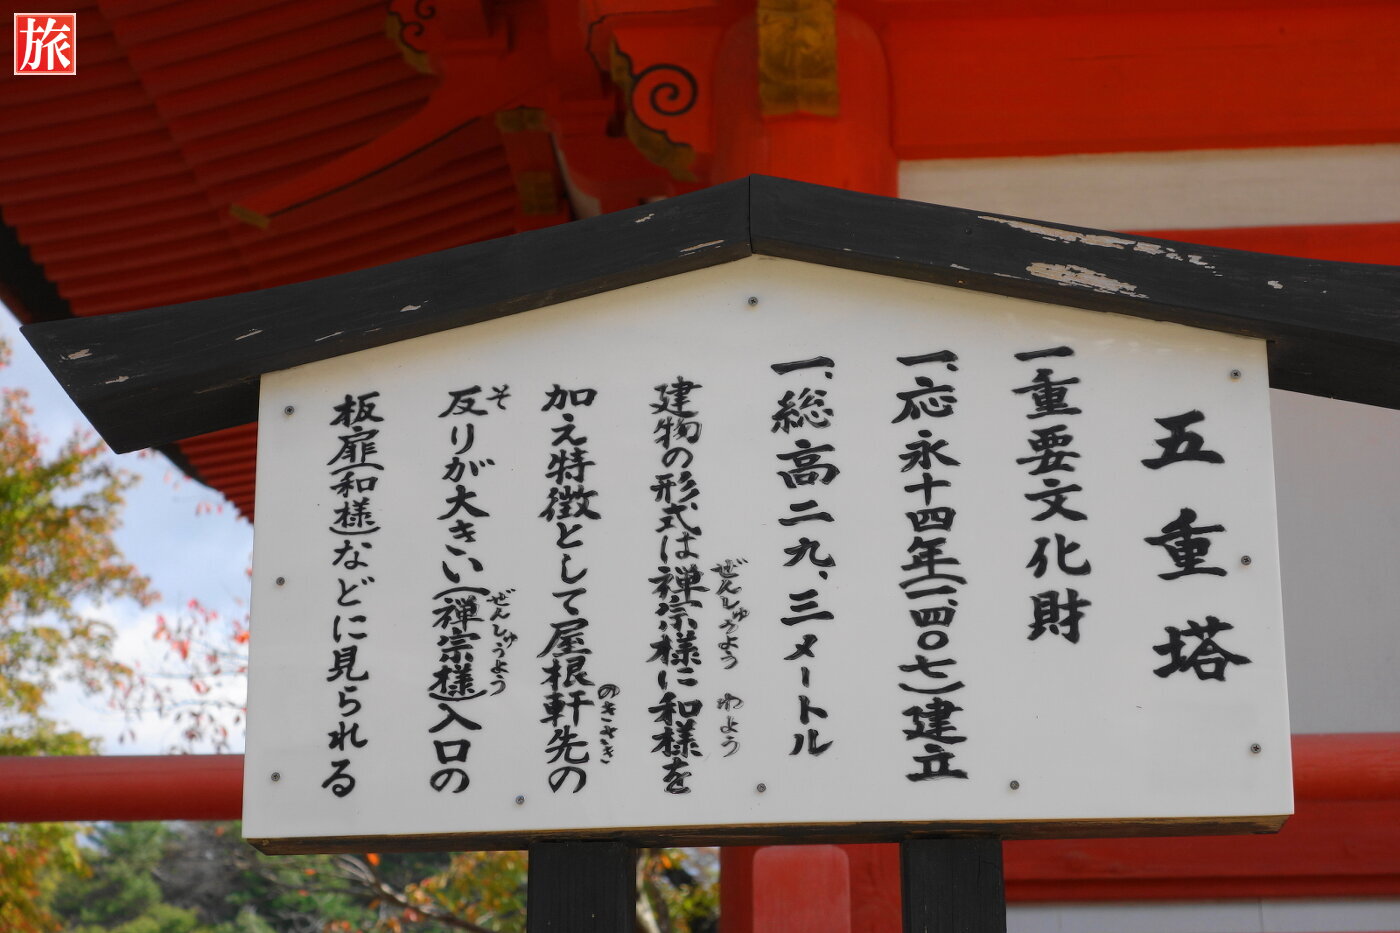 五重塔
一重要文化財
一、応永十四年(一、四〇七)建立
一、総高二九、三メートル
建物の形式は禅宗様に和様を
ぜんしゅうよう わよう
加え特徴として屋根軒先の
のきさき
反りが大きい(禅宗様)入口の
そ ぜんしゅうよう
板扉(和様)などに見られる
旅